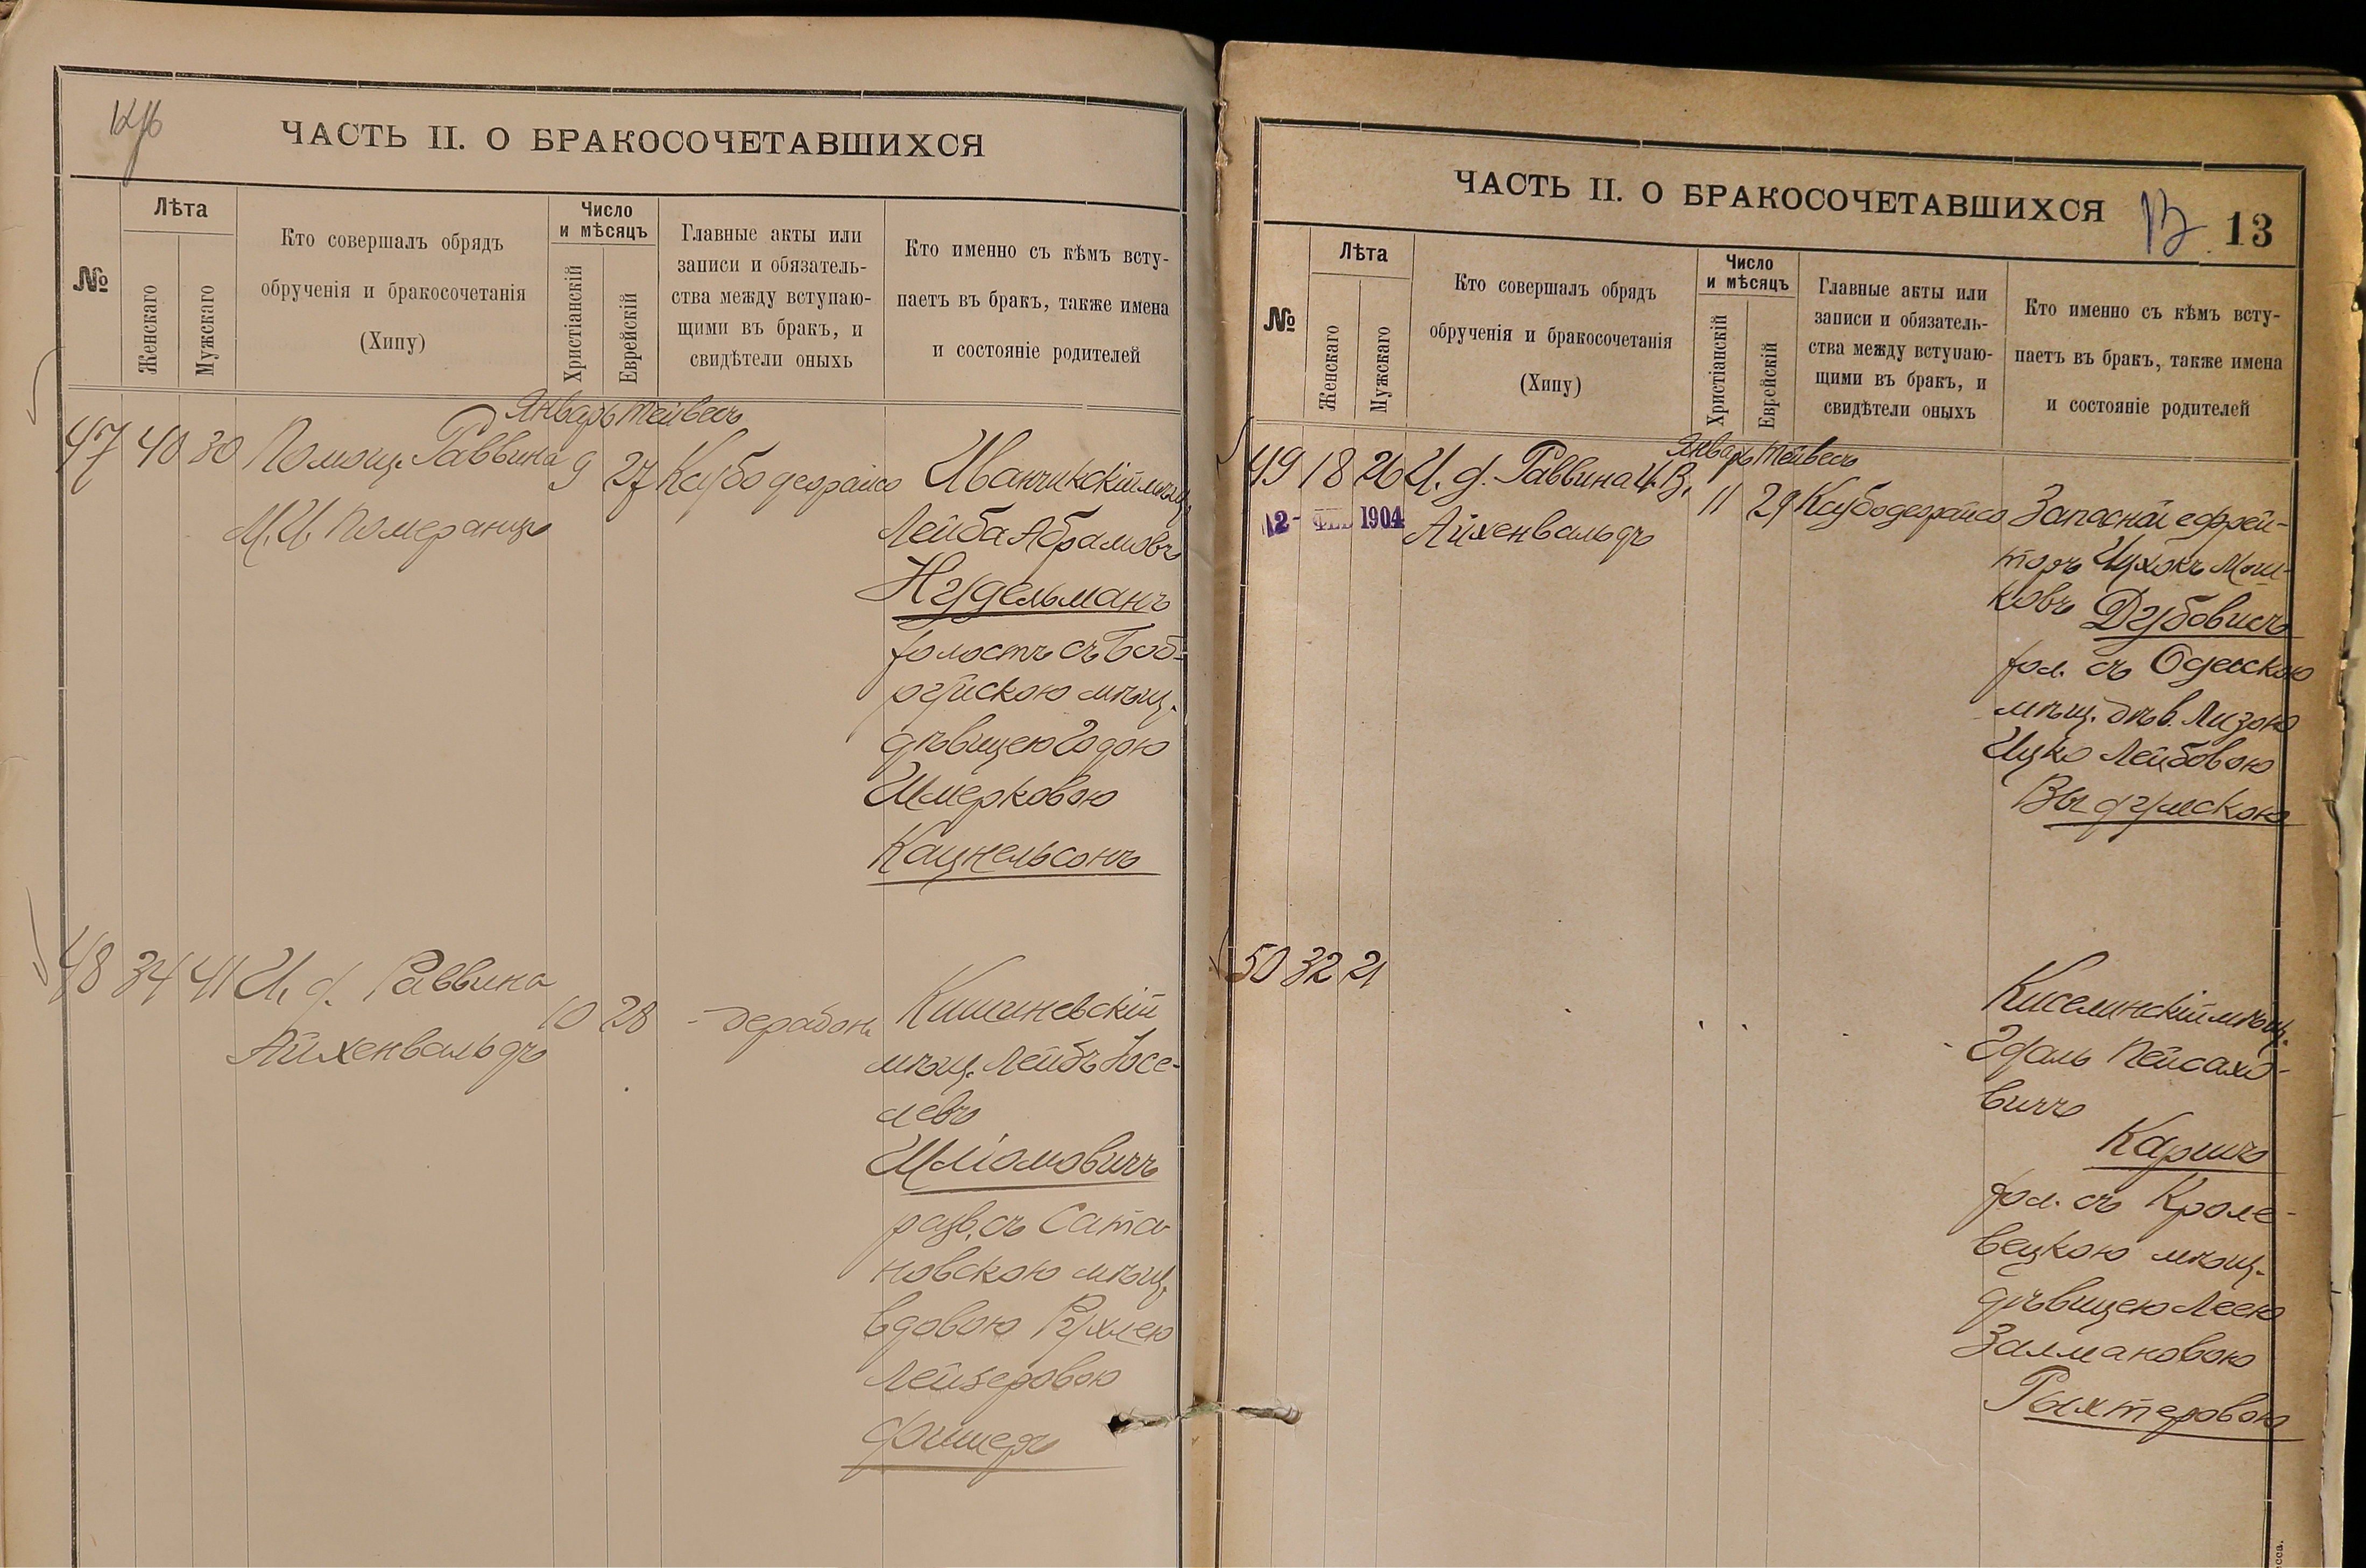 ЧАСТЬ II. О БРАКОСОЧЕТАВШИХСЯ
№
Лѣта
Женскаго
Мужскаго
Кто совершалъ обрядъ
обрученія и бракосочетанія
(Хипу)
Число
и мѣсяцъ
Христіанскій
Еврейскій
Главные акты или
записи и обязатель-
ства между вступаю-
щими въ бракъ, и
свидѣтели оныхъ
Кто именно съ кѣмъ всту-
паетъ въ бракъ, также имена
и состояніе родителей
Январь Тейвесъ
47 40 30 Помощ. Раввина 9 27
М. И. Померанцъ
Иванчикскій мѣщ.
Лейба Абрамовъ
Нудельманъ
холостъ съ Боб-
руйскою мѣщ.
дѣвицею Годою
Шмерковою
Кацнельсонъ
48 34 41 И. д. Раввина 10 28
Айхенвальдъ
Кишиневскій
мѣщ. Лейбъ Іосе-
левъ
Шліомовичъ
разв. съ Сата-
новскою мѣщ.
вдовою Рухлею
Лейзеровою
Фишеръ
ЧАСТЬ II. О БРАКОСОЧЕТАВШИХСЯ
13
№
Лѣта
Женскаго
Мужскаго
Кто совершалъ обрядъ
обрученія и бракосочетанія
(Хипу)
Число
и мѣсяцъ
Христіанскій
Еврейскій
Главные акты или
записи и обязатель-
ства между вступаю-
щими въ бракъ, и
свидѣтели оныхъ
Кто именно съ кѣмъ всту-
паетъ въ бракъ, также имена
и состояніе родителей
Январь Тейвесъ
49 18 26 И. д. Раввина 11 29
12 - ФЕВ 1904
Айхенвальдъ
Запасной ефрей-
торъ Ицхокъ Мош-
ковъ Дубовисъ
хол. съ Одесскою
мѣщ. дѣв. Лизою
Ицко Лейбовою
Выдумскою
50 32 21
Киселинскій мѣщ.
Гдаль Пейсахо-
вичъ
Каришъ
хол. съ Кроле-
вецкою мѣщ.
дѣвицею Леею
Залмановою
Рыхтеровою